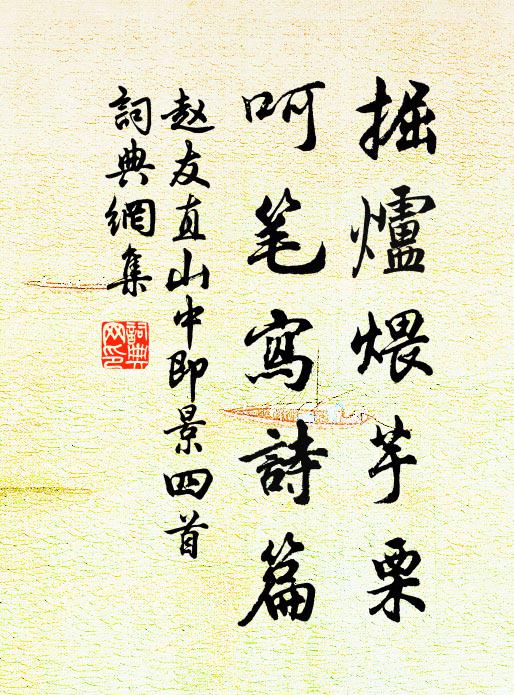 掘爐煨芋栗
呵笔寫詩篇
赵友直山中即景四首
詞典網集
詞典网印